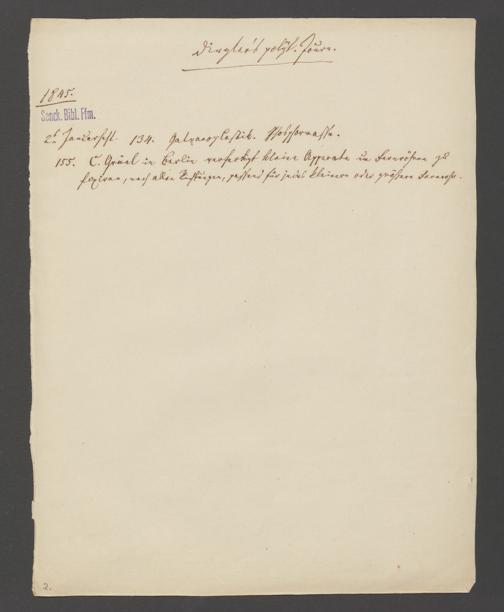 Dingler's polyt. Journ.
1845.
Senck. Bibl. Ffm.
2s Januarheft. 134. Galvanoplastik. Phosphormasse.
155. C. Grüel in Berlin verfertigt kleine Apparate um Fernröhre zu
fixiren, nach allen Richtungen, passend für jedes kleinere oder größere Fernrohr.
2.